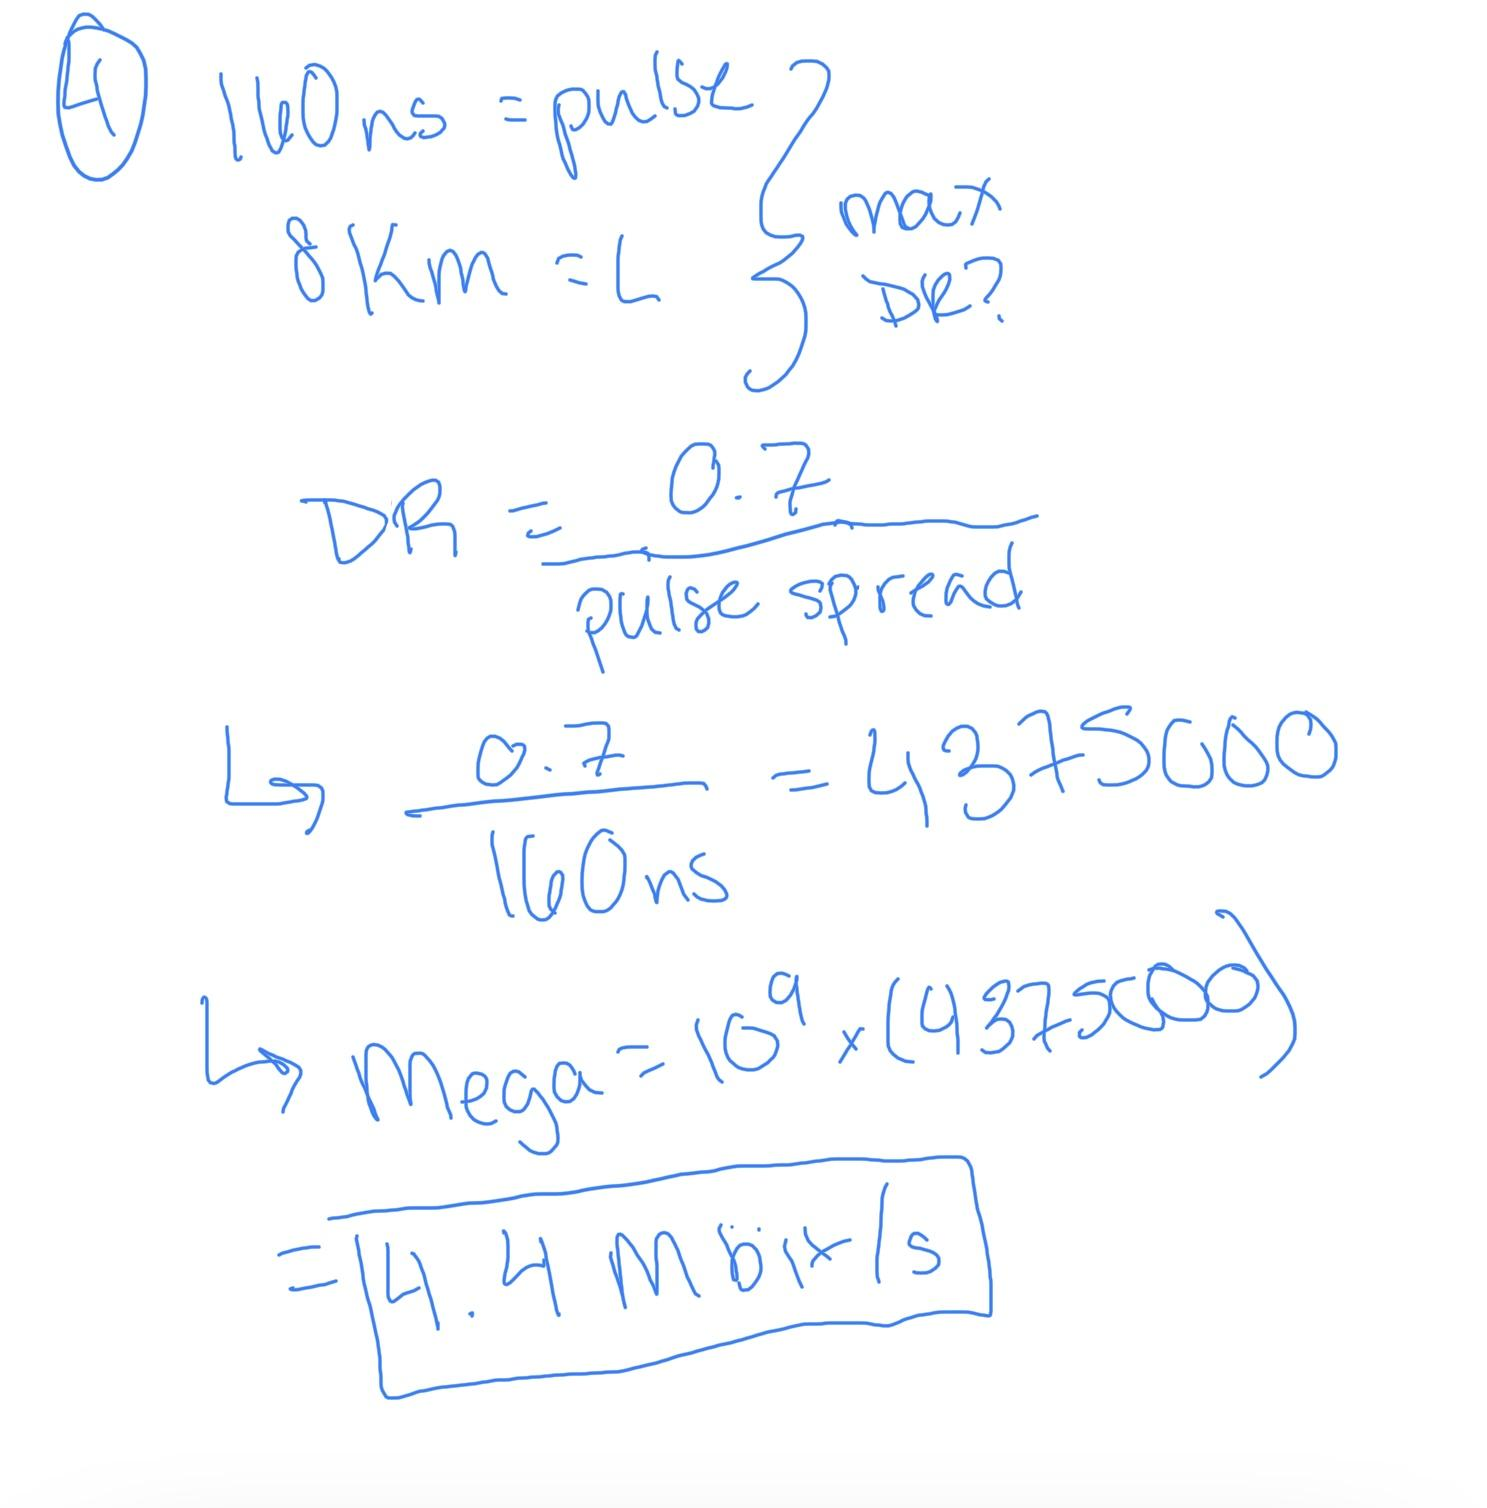 4 160ns = pulse
8 Km = L
max
DR?
DR = 0.7
pulse spread
↳ 0.7 = 4375000
160ns
↳ Mega = 10⁹ × (4375000)
= 4.4 Mbit/s